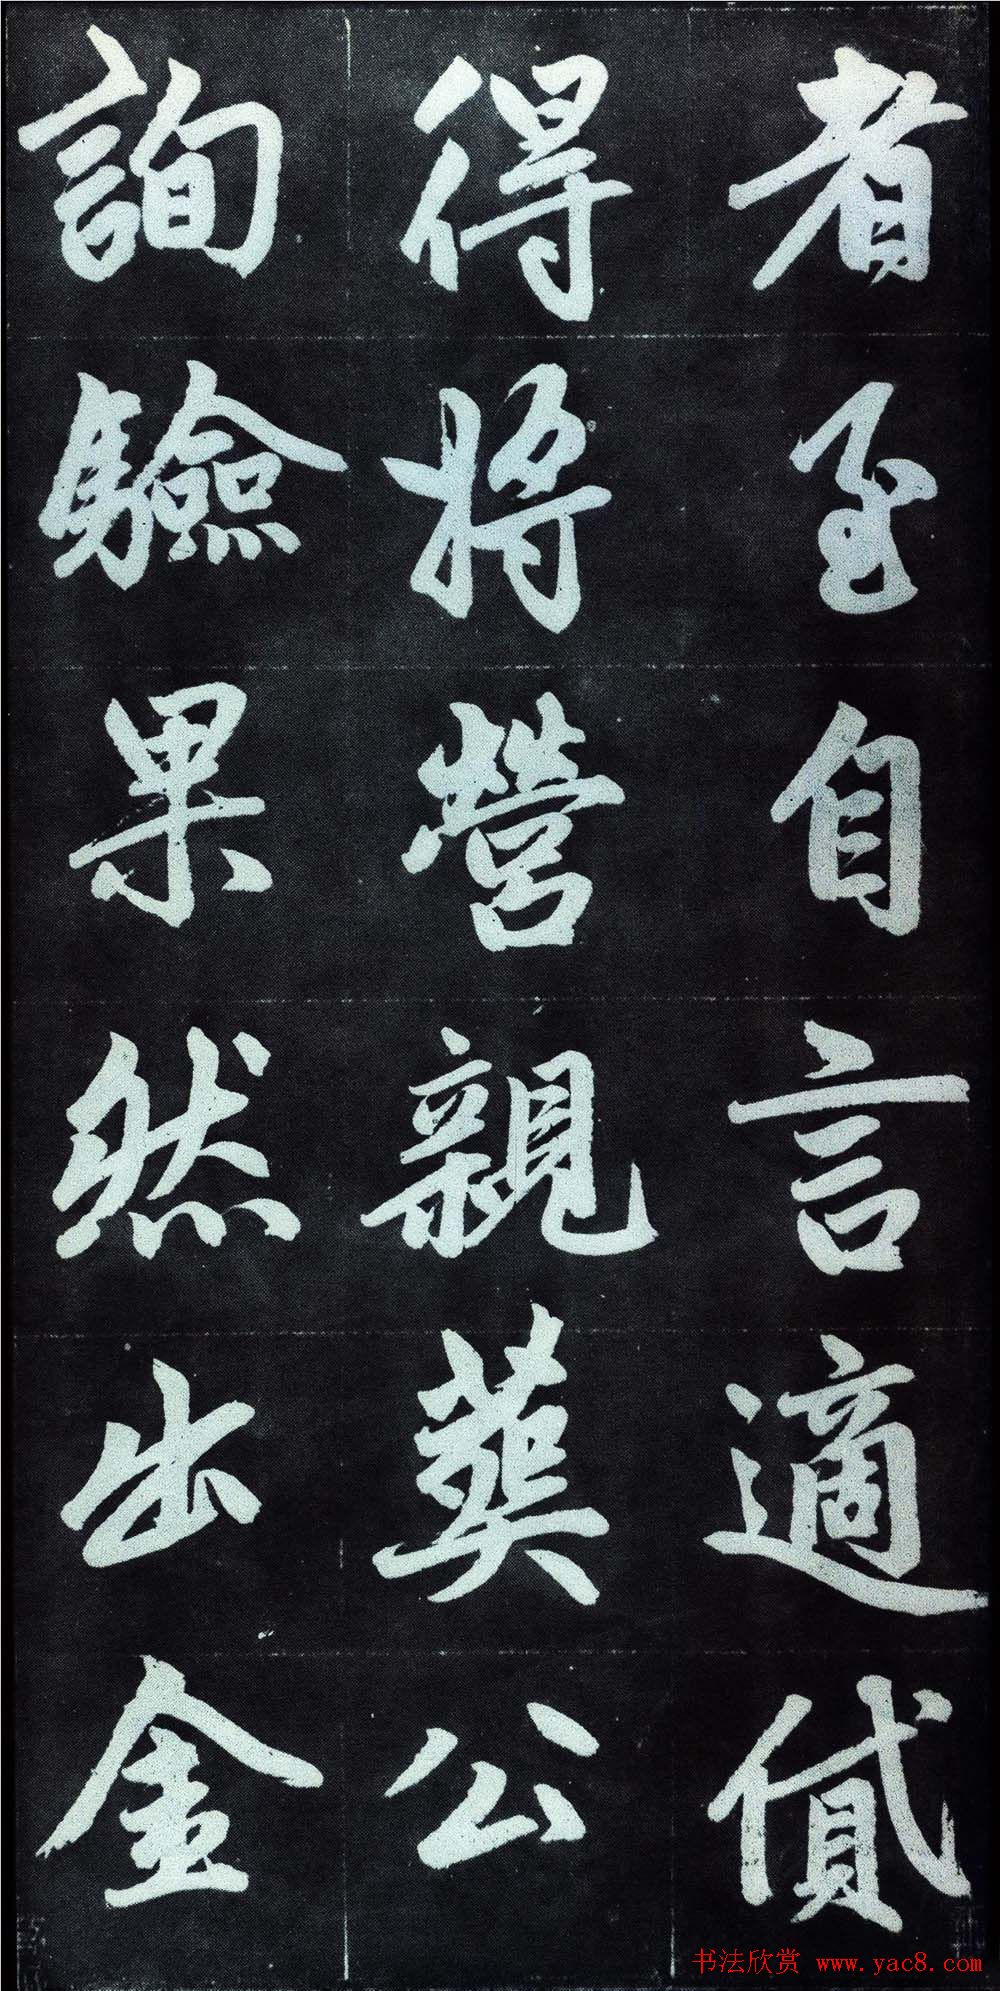 者至自言適貸
得將營親葬公
詢驗果然出金
书法欣赏 www.yac8.com